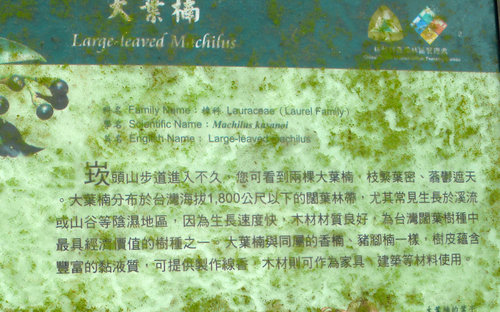 大葉楠
Large-leaved Machilus
科名 Family Name：樟科 Lauraceae（Laurel Family）
學名 Scientific Name：Machilus kusanoi
英名 English Name： Large-leaved machilus
崁頭山步道進入不久，您可看到兩棵大葉楠，枝繁葉密、蓊鬱遮天
。大葉楠分布於台灣海拔1,800公尺以下的闊葉林帶，尤其常見生長於溪流
或山谷等陰濕地區，因為生長速度快，木材材質良好，為台灣闊葉樹種中
最具經濟價值的樹種之一。大葉楠與同屬的香楠、豬腳楠一樣，樹皮蘊含
豐富的黏液質，可提供製作線香，木材則可作為家具、建築等材料使用。